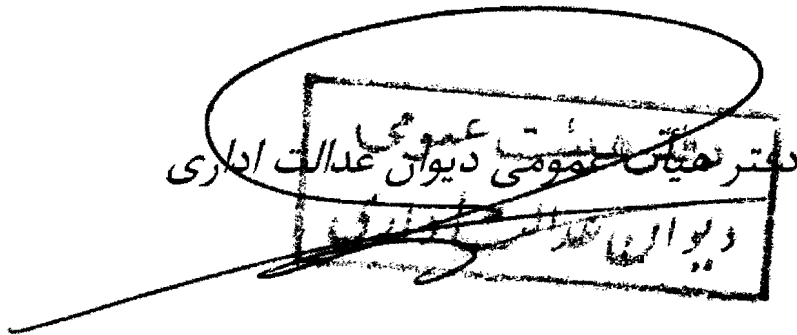 دفتر هیأت عمومی دیوان عدالت اداری
هیئت عمومی
دیوان عدالت اداری